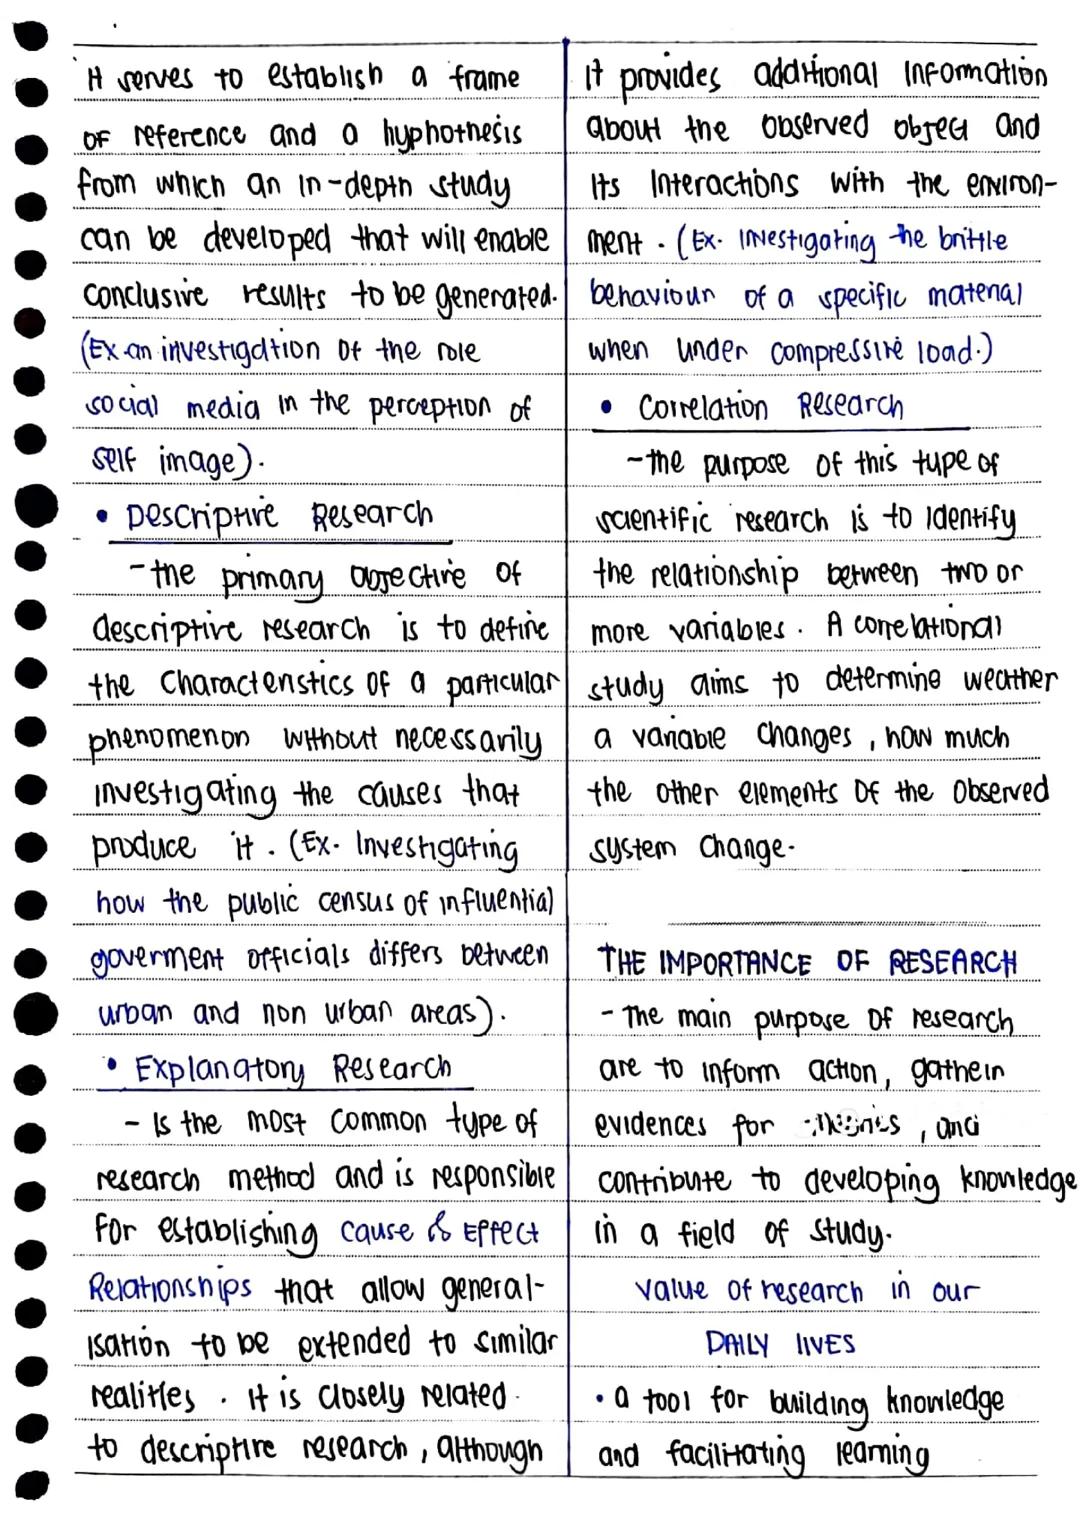 It serves to establish a frame
of reference and a hyphothesis
from which an in-depth study
can be developed that will enable
conclusive results to be generated.
(Ex. an investigation of the role
social media in the perception of
self image).
• Descriptive Research
- the primary objective of
descriptive research is to define
the characteristics of a particular
phenomenon without necessarily
investigating the causes that
produce it. (Ex. Investigating
how the public census of influential
goverment officials differs between
urban and non urban areas).
• Explanatory Research
- Is the most common type of
research method and is responsible
for establishing cause & Effect
Relationships that allow general-
isation to be extended to similar
realities. It is closely related
to descriptive research, although
It provides additional information
about the observed object and
its interactions with the environ-
ment. (Ex. Investigating the brittle
behaviour of a specific material
when under compressive load.)
• Correlation Research
- the purpose of this type of
scientific research is to identify
the relationship between two or
more variables. A correlational
study aims to determine weather
a variable changes, how much
the other elements of the observed
system change.
THE IMPORTANCE OF RESEARCH
- The main purpose of research
are to inform action, gathein
evidences for theories, and
contribute to developing knowledge
in a field of study.
value of research in our
DAILY LIVES
• a tool for building knowledge
and facilitating learning